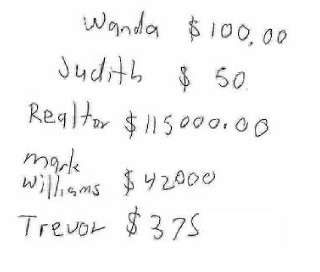 Wanda $100.00
Judith $ 50
Realtor $115000.00
mark
williams $42000
Trevor $375